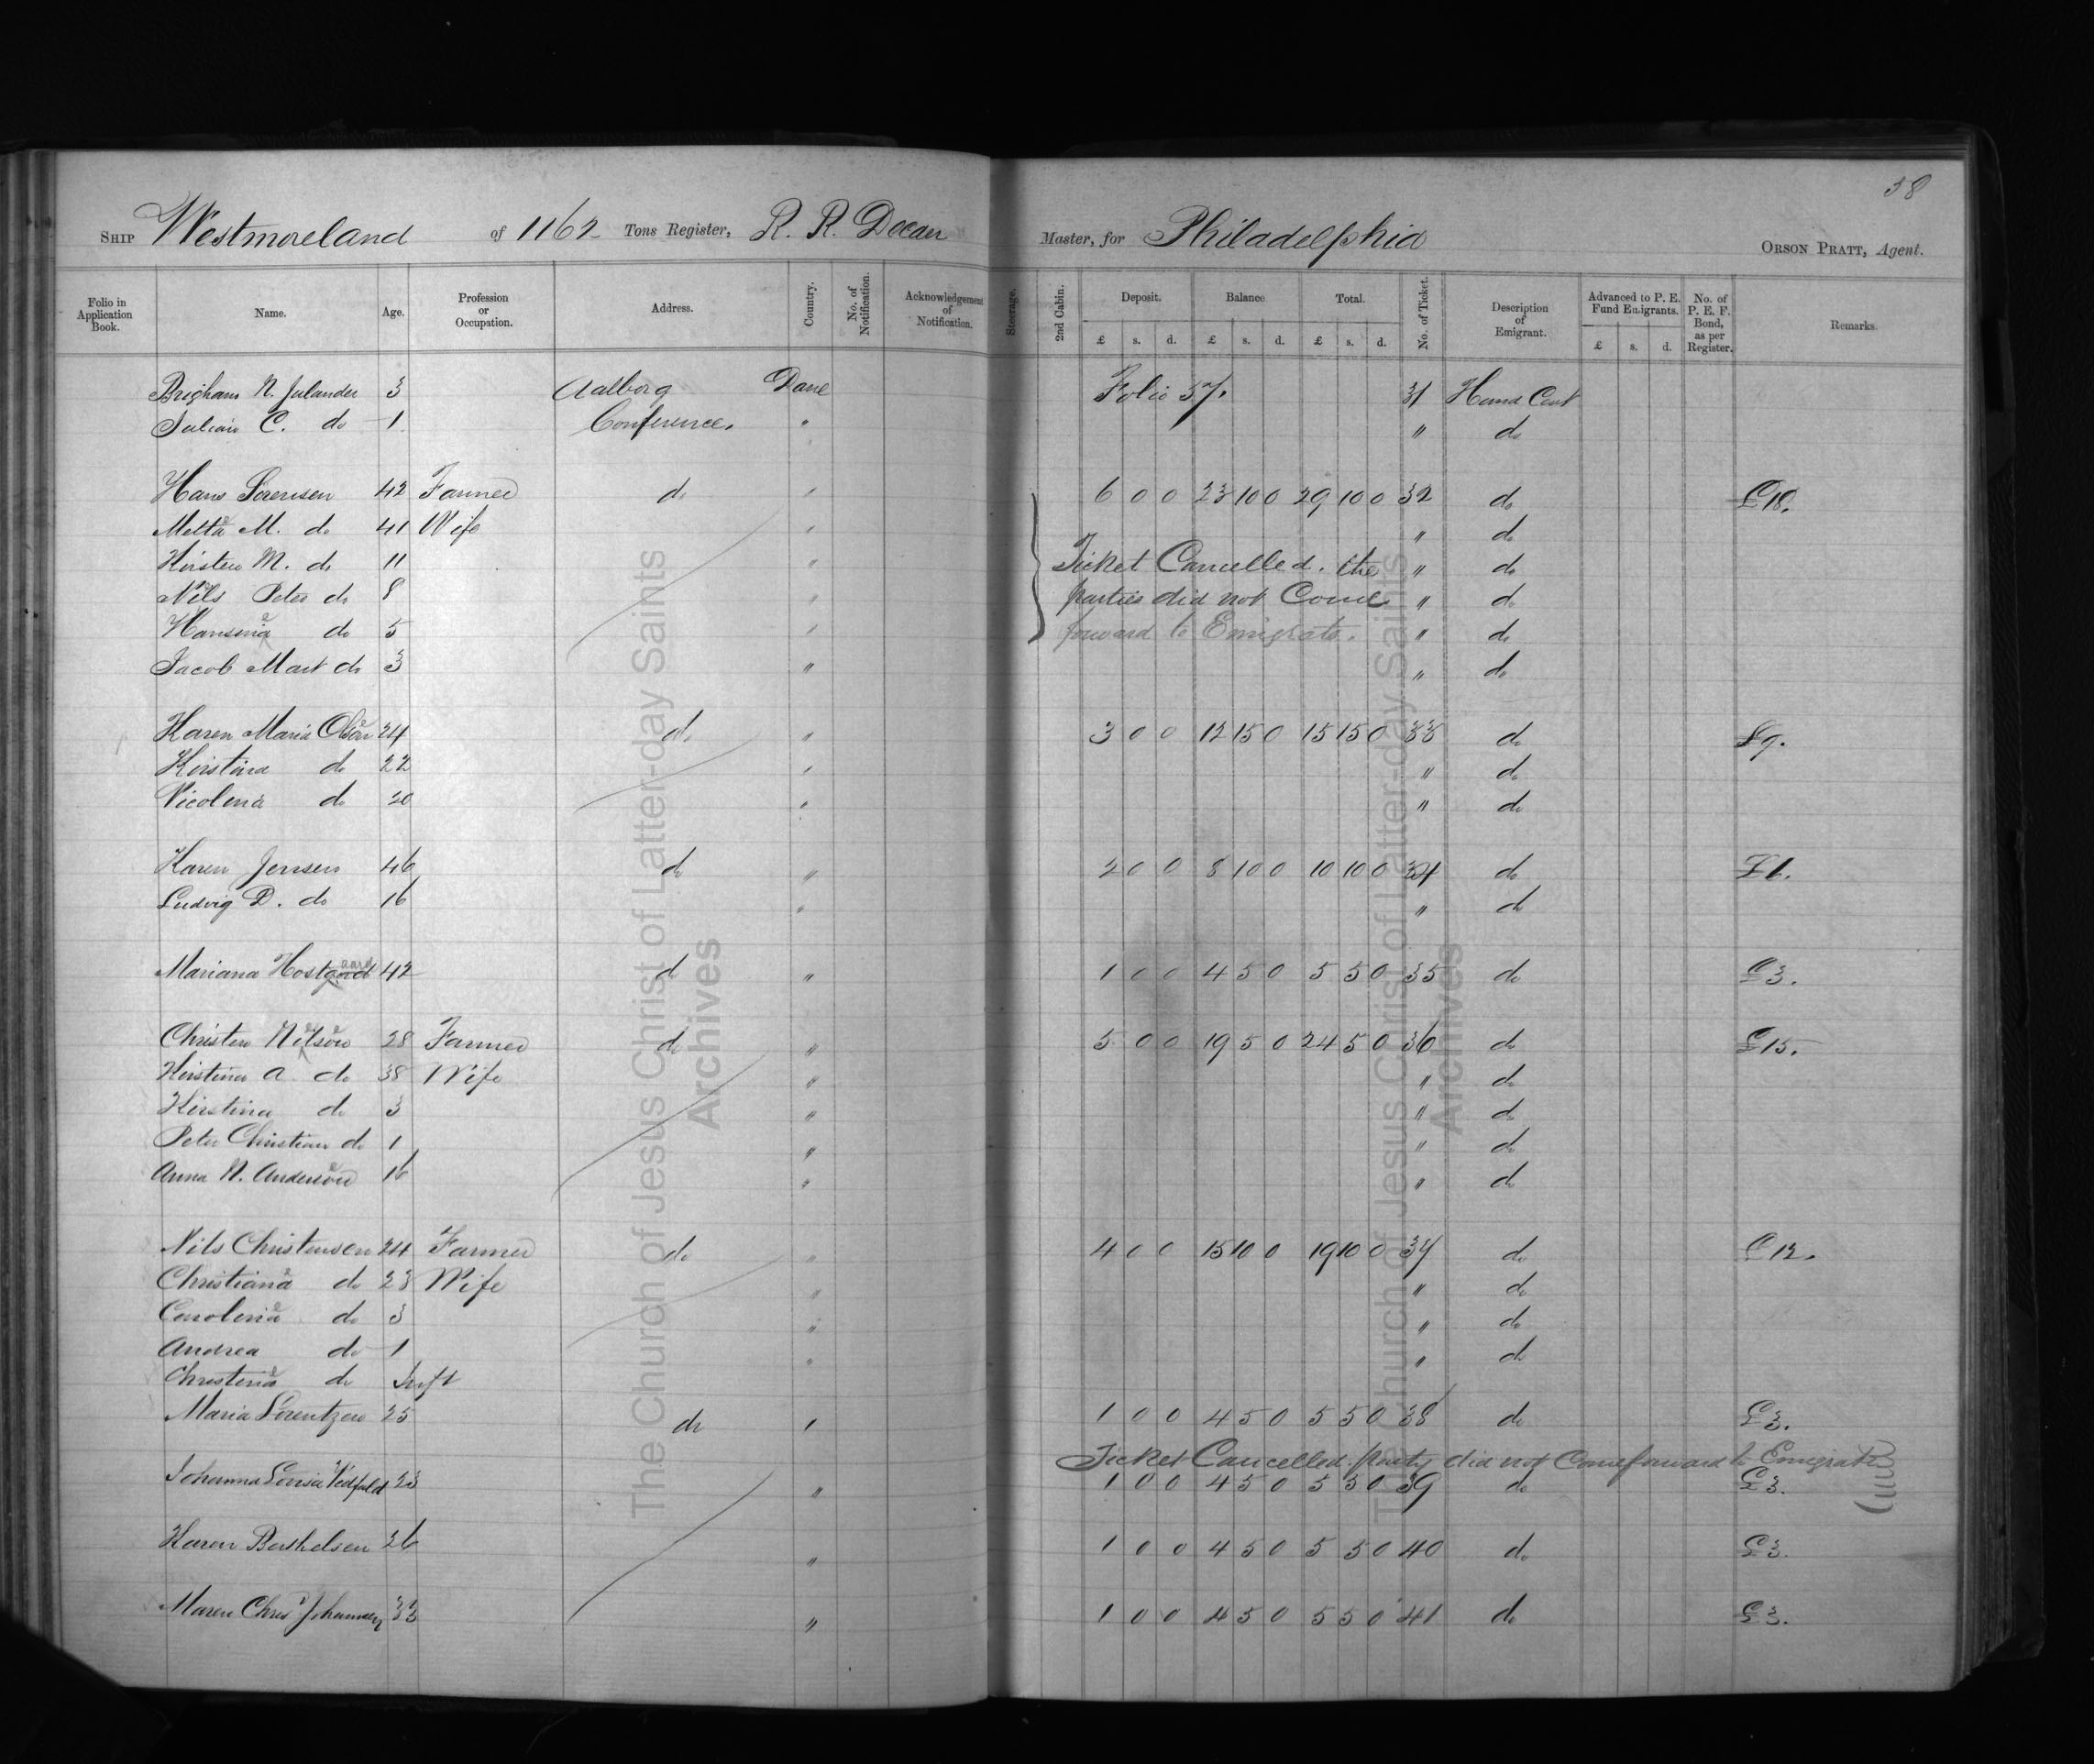 38
SHIP Westmoreland of 1162 Tons Register, R. R. Decan Master, for Philadelphia ORSON PRATT, Agent.
Folio in Application Book. Name. Age. Profession or Occupation. Address. Country. No. of Notification. Acknowledgement of Notification. Steerage. 2nd Cabin. Deposit. £ s. d. Balance £ s. d. Total. £ s. d. No. of Ticket. Description of Emigrant. Advanced to P. E. Fund Emigrants. £ s. d. No. of P. E. F. Bond, as per Register. Remarks.
Brigham N. Julander 3 Aalborg Dane Folio 37. 31 Hand Cart
C. do 1 Conference. " " do
Hans Sorensen 42 Farmer do " 6 0 0 23 10 0 29 10 0 32 do £18.
Metta M. do 41 Wife " " do
Kirsten M. do 11 " Ticket Cancelled. the " do
Nils Peter do 8 " parties did not Come " do
Hansena do 5 " forward to Emigrate. " do
Jacob Mart do 3 " " do
Karen Maria Olsen 24 do " 3 0 0 12 15 0 15 15 0 33 do £9.
Kirstina do 22 " " do
Nicolena do 20 " " do
Karen Jensen 46 do " 2 0 0 8 10 0 10 10 0 34 do £6.
Ludvig D. do 16 " " do
Mariana Hostgaard 42 do " 1 0 0 4 5 0 5 5 0 35 do £3.
Christen Nielsen 28 Farmer do " 5 0 0 19 5 0 24 5 0 36 do £15.
Kirstina A. do 38 Wife " " do
Kirstina do 3 " " do
Peter Christian do 1 " " do
Anna N. Andersen 16 " " do
Nils Christensen 24 Farmer do " 4 0 0 15 10 0 19 10 0 37 do £12.
Christiane do 23 Wife " " do
Caroline do 3 " " do
Andrea do 1 " " do
Christine do Inft
Maria Lorentzen 25 do " 1 0 0 4 5 0 5 5 0 38 do £3.
Ticket Cancelled party did not Come forward to Emigrate
Johanna Lovisa 23 " 1 0 0 4 5 0 5 5 0 39 do £3.
Karen Berthelsen 26 " 1 0 0 4 5 0 5 5 0 40 do £3.
Maren Chres 33 " 1 0 0 4 5 0 5 5 0 41 do £3.
The Church of Jesus Christ of Latter-day Saints
Archives
The Church of Jesus Christ of Latter-day Saints
Archives